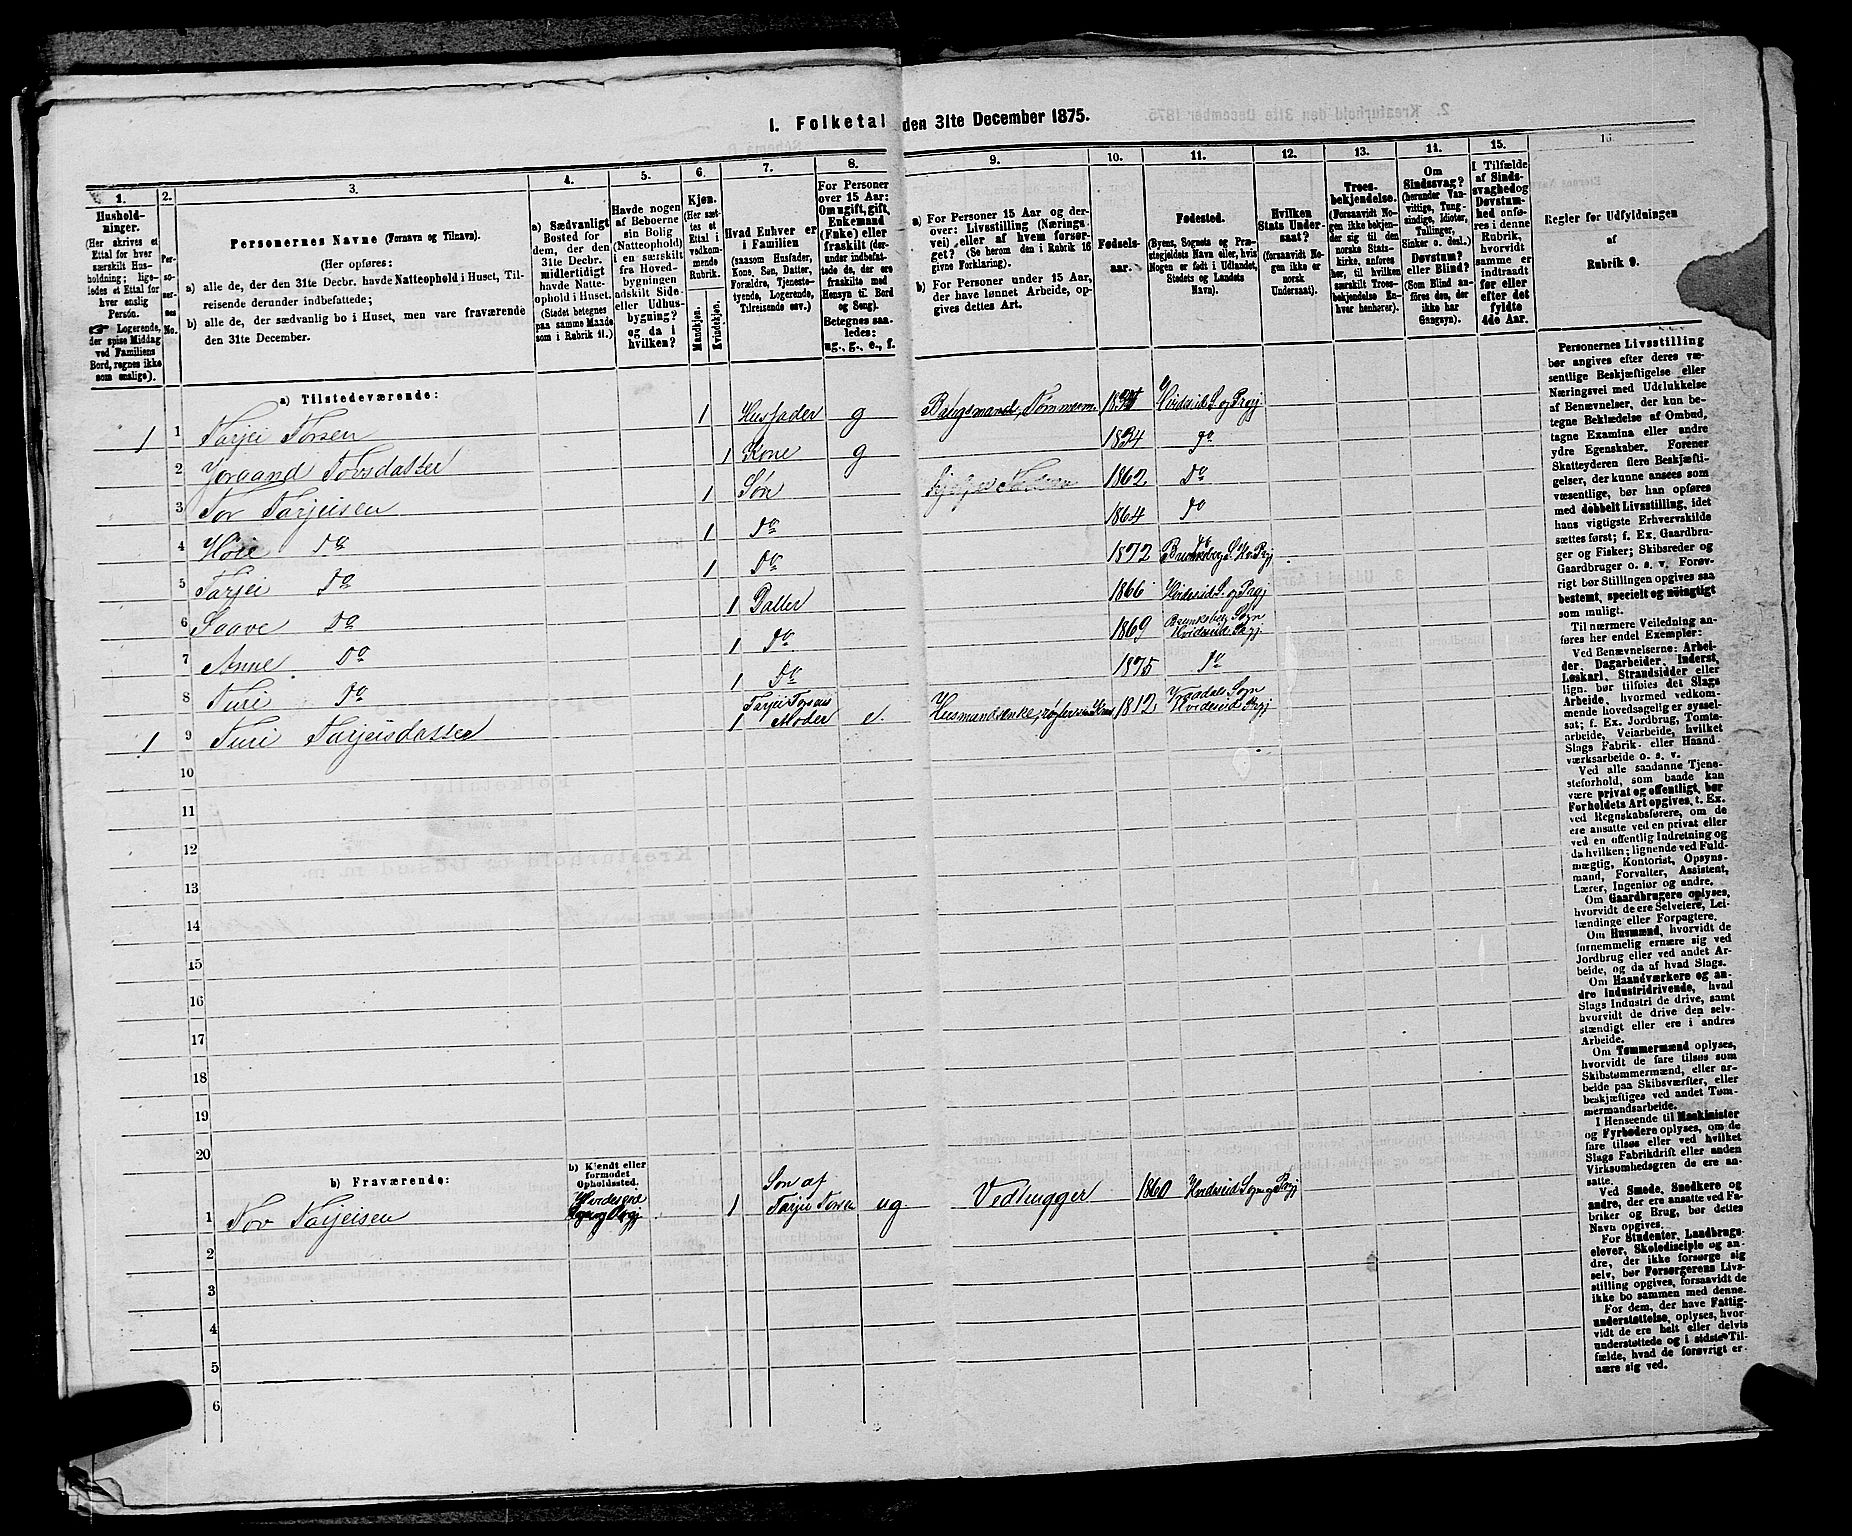 I. Folketal den 31te December 1875.
1.
Hushold-
ninger.
(Her skrives et
Ettal for hver
særskilt Hus-
holdning; lige-
ledes et Ettal for
hver enslig
Person.
☛ Logerende,
der spise Middag
ved Familiens
Bord, regnes ikke
som enslige).
2.
Per-
so-
ner-
nes
No.
3.
Personernes Navne (Fornavn og Tilnavn).
(Her opføres:
a) alle de, der den 31te Decbr. havde Natteophold i Huset, Til-
reisende derunder indbefattede;
b) alle de, der sædvanlig bo i Huset, men vare fraværende
den 31te December.
4.
a) Sædvanligt
Bosted for
dem, der den
31te Decbr.
midlertidigt
havde Natte-
ophold i Huset.
(Stedet betegnes
paa samme Maade
som i Rubrik 11.)
5.
Havde nogen
af Beboerne
sin Bolig
(Natteophold)
i en særskilt
fra Hoved-
bygningen
adskilt Side-
eller Udhus-
bygning?
og da i
hvilken?
6.
Kjøn.
(Her sæt-
tes et
Ettal i
vedkom-
mende
Rubrik.
Mandkjøn.
Kvindekjøn.
7.
Hvad Enhver er
i Familien
(saasom Husfader,
Kone, Søn, Datter,
Forældre, Tjeneste-
tyende, Logerende,
Tilreisende osv.)
8.
For Personer
over 15 Aar:
Om ugift, gift,
Enkemand
(Enke) eller
fraskilt (der-
under indbefat-
tede de, der ere
fraskilte med
Hensyn til Bord
og Seng).
Betegnes saa-
ledes:
ug., g., e., f.
9.
a) For Personer 15 Aar og der-
over: Livsstilling (Nærings-
vei) eller af hvem forsør-
get? (Se herom den i Rubrik 16
givne Forklaring).
b) For Personer under 15 Aar,
der have lønnet Arbeide, op-
gives dettes Art.
10.
Fødsels-
aar.
11.
Fødested.
(Byens, Sognets og Præ-
stegjeldets Navn eller, hvis
Nogen er født i Udlandet,
Stedets og Landets
Navn).
12.
Hvilken
Stats Under-
saat?
(forsaavidt No-
gen ikke er
norsk
Undersaat).
13.
Troes-
bekjendelse.
(Forsaavidt No-
gen ikke bekjen-
der sig til den
norske Stats-
kirke, anføres
her, til hvilken
særskilt Troes-
bekjendelse En-
hver henhører).
14.
Om
Sindssvag?
(herunder Van-
vittige, Tung-
sindige, Idioter,
Tullinger,
Sinker o. desl.)
Døvstum?
eller Blind?
(Som Blind an-
føres den, der
ikke har
Gangsyn).
15.
I Tilfælde
af Sinds-
svaghed og
Døvstum-
hed anfø-
res i denne
Rubrik,
hvorvidt
samme er
indtraadt
før eller
efter det
fyldte
4de Aar.
16.
Regler for Udfyldningen
af
Rubrik 9.
a) Tilstedeværende:
1 1 Tarjei Torsen 1 Husfader g Tømmerm. Hvideseid S. og Prgj
2 Jøraand Torsdatter 1 Kone g 1834 Do
3 Tor Tarjeisen 1 Søn 1862 Do
4 Do 1 Do 1864 Do
5 Tarjei Do 1 Do 1872 Brunkeberg S. Hv. Prgj
6 Do 1 Datter 1866 Hvideseid S. og Prgj
7 Anne Do 1 Do 1869 Brunkeberg Sogn Hvideseid Prgj.
8 Turi Do 1 Do 1875 Do
1 9 Turi Tarjeisdatter 1 Tarjei Torsens Moder e. 1812 Vraadals Sogn Hvideseid Prgj
10
11
12
13
14
15
16
17
18
19
20
b) Fraværende:
b) Kjendt eller
formodet
Opholdssted.
1 Tov Tarjeisen Hvideseid Sogn og Prgj 1 Søn af Tarjei Torsen ug Vedhugger 1860 Hvideseid Sogn og Prgj
2
3
4
5
6
Personernes Livsstilling
bør angives efter deres væ-
sentlige Beskjæftigelse eller
Næringsvei med Udelukkelse
af Benævnelser, der kun be-
tegne Beklædelse af Ombud,
tagne Examina eller andre
ydre Egenskaber. Forener
Skatteyderen flere Beskjæfti-
gelser, der kunne ansees som
væsentlige, bør han opføres
med dobbelt Livsstilling, idet
hans vigtigste Erhvervskilde
sættes først; f. Ex. Gaardbru-
ger og Fisker; Skibsreder og
Gaardbruger o. s. v. Forøv-
rigt bør Stillingen opgives saa
bestemt, specielt og nøiagtigt
som muligt.
Til nærmere Veiledning an-
føres her endel Exempler:
Ved Benævnelserne: Arbei-
der, Dagarbeider, Inderst,
Løskarl, Strandsidder eller
lign. bør tilføies det Slags
Arbeide, hvormed vedkom-
mende hovedsagelig er syssel-
sat; f. Ex. Jordbrug, Tomte-
arbeide, Veiarbeide, hvilket
Slags Fabrik- eller Haand-
værksarbeide o. s. v.
Ved alle saadanne Tjene-
steforhold, som baade kan
være privat og offentligt, bør
Forholdets Art opgives, t. Ex.
ved Regnskabsførere, om de
ere ansatte ved en privat eller
ved en offentlig Indretning og
da hvilken; lignende ved Fuld-
mægtig, Kontorist, Opsyns-
mand, Forvalter, Assistent,
Lærer, Ingeniør og andre.
Om Gaardbrugere oplyses,
hvorvidt de ere Selveiere, Lei-
lændinge eller Forpagtere.
Om Husmænd, hvorvidt de
fornemmelig ernære sig ved
Jordbrug eller ved andet Ar-
beide, og da af hvad Slags.
Om Haandværkere og an-
dre industridrivende, hvad
Slags Industri de drive, samt
hvorvidt de drive den selv-
stændigt eller ere i andres
Arbeide.
Om Tømmermænd oplyses,
hvorvidt de fare tilsøs som
Skibstømmermænd, eller ar-
beide paa Skibsværfter, eller
beskjæftiges ved andet Tøm-
mermandsarbeide.
I Henseende til Maskinister
og Fyrbødere oplyses, om de
fare tilsøs eller ved hvilket
Slags Fabrikdrift eller anden
Virksomhedsgren de ere an-
satte.
Ved Smede, Snedkere og
andre, der ere ansatte ved Fa-
briker og Brug, bør dettes
Navn opgives.
For Studenter, Landbrugs-
elever, Skoledisciple og an-
dre, der ikke forsørge sig
selv, bør Forsørgerens Livs-
stilling opgives, forsaavidt de
ikke bo sammen med denne.
For dem, der have Fattig-
understøttelse, oplyses, hvor-
vidt de ere helt eller delvis
understøttede og i sidste Til-
fælde, hvad de forøvrigt er-
nære sig ved.